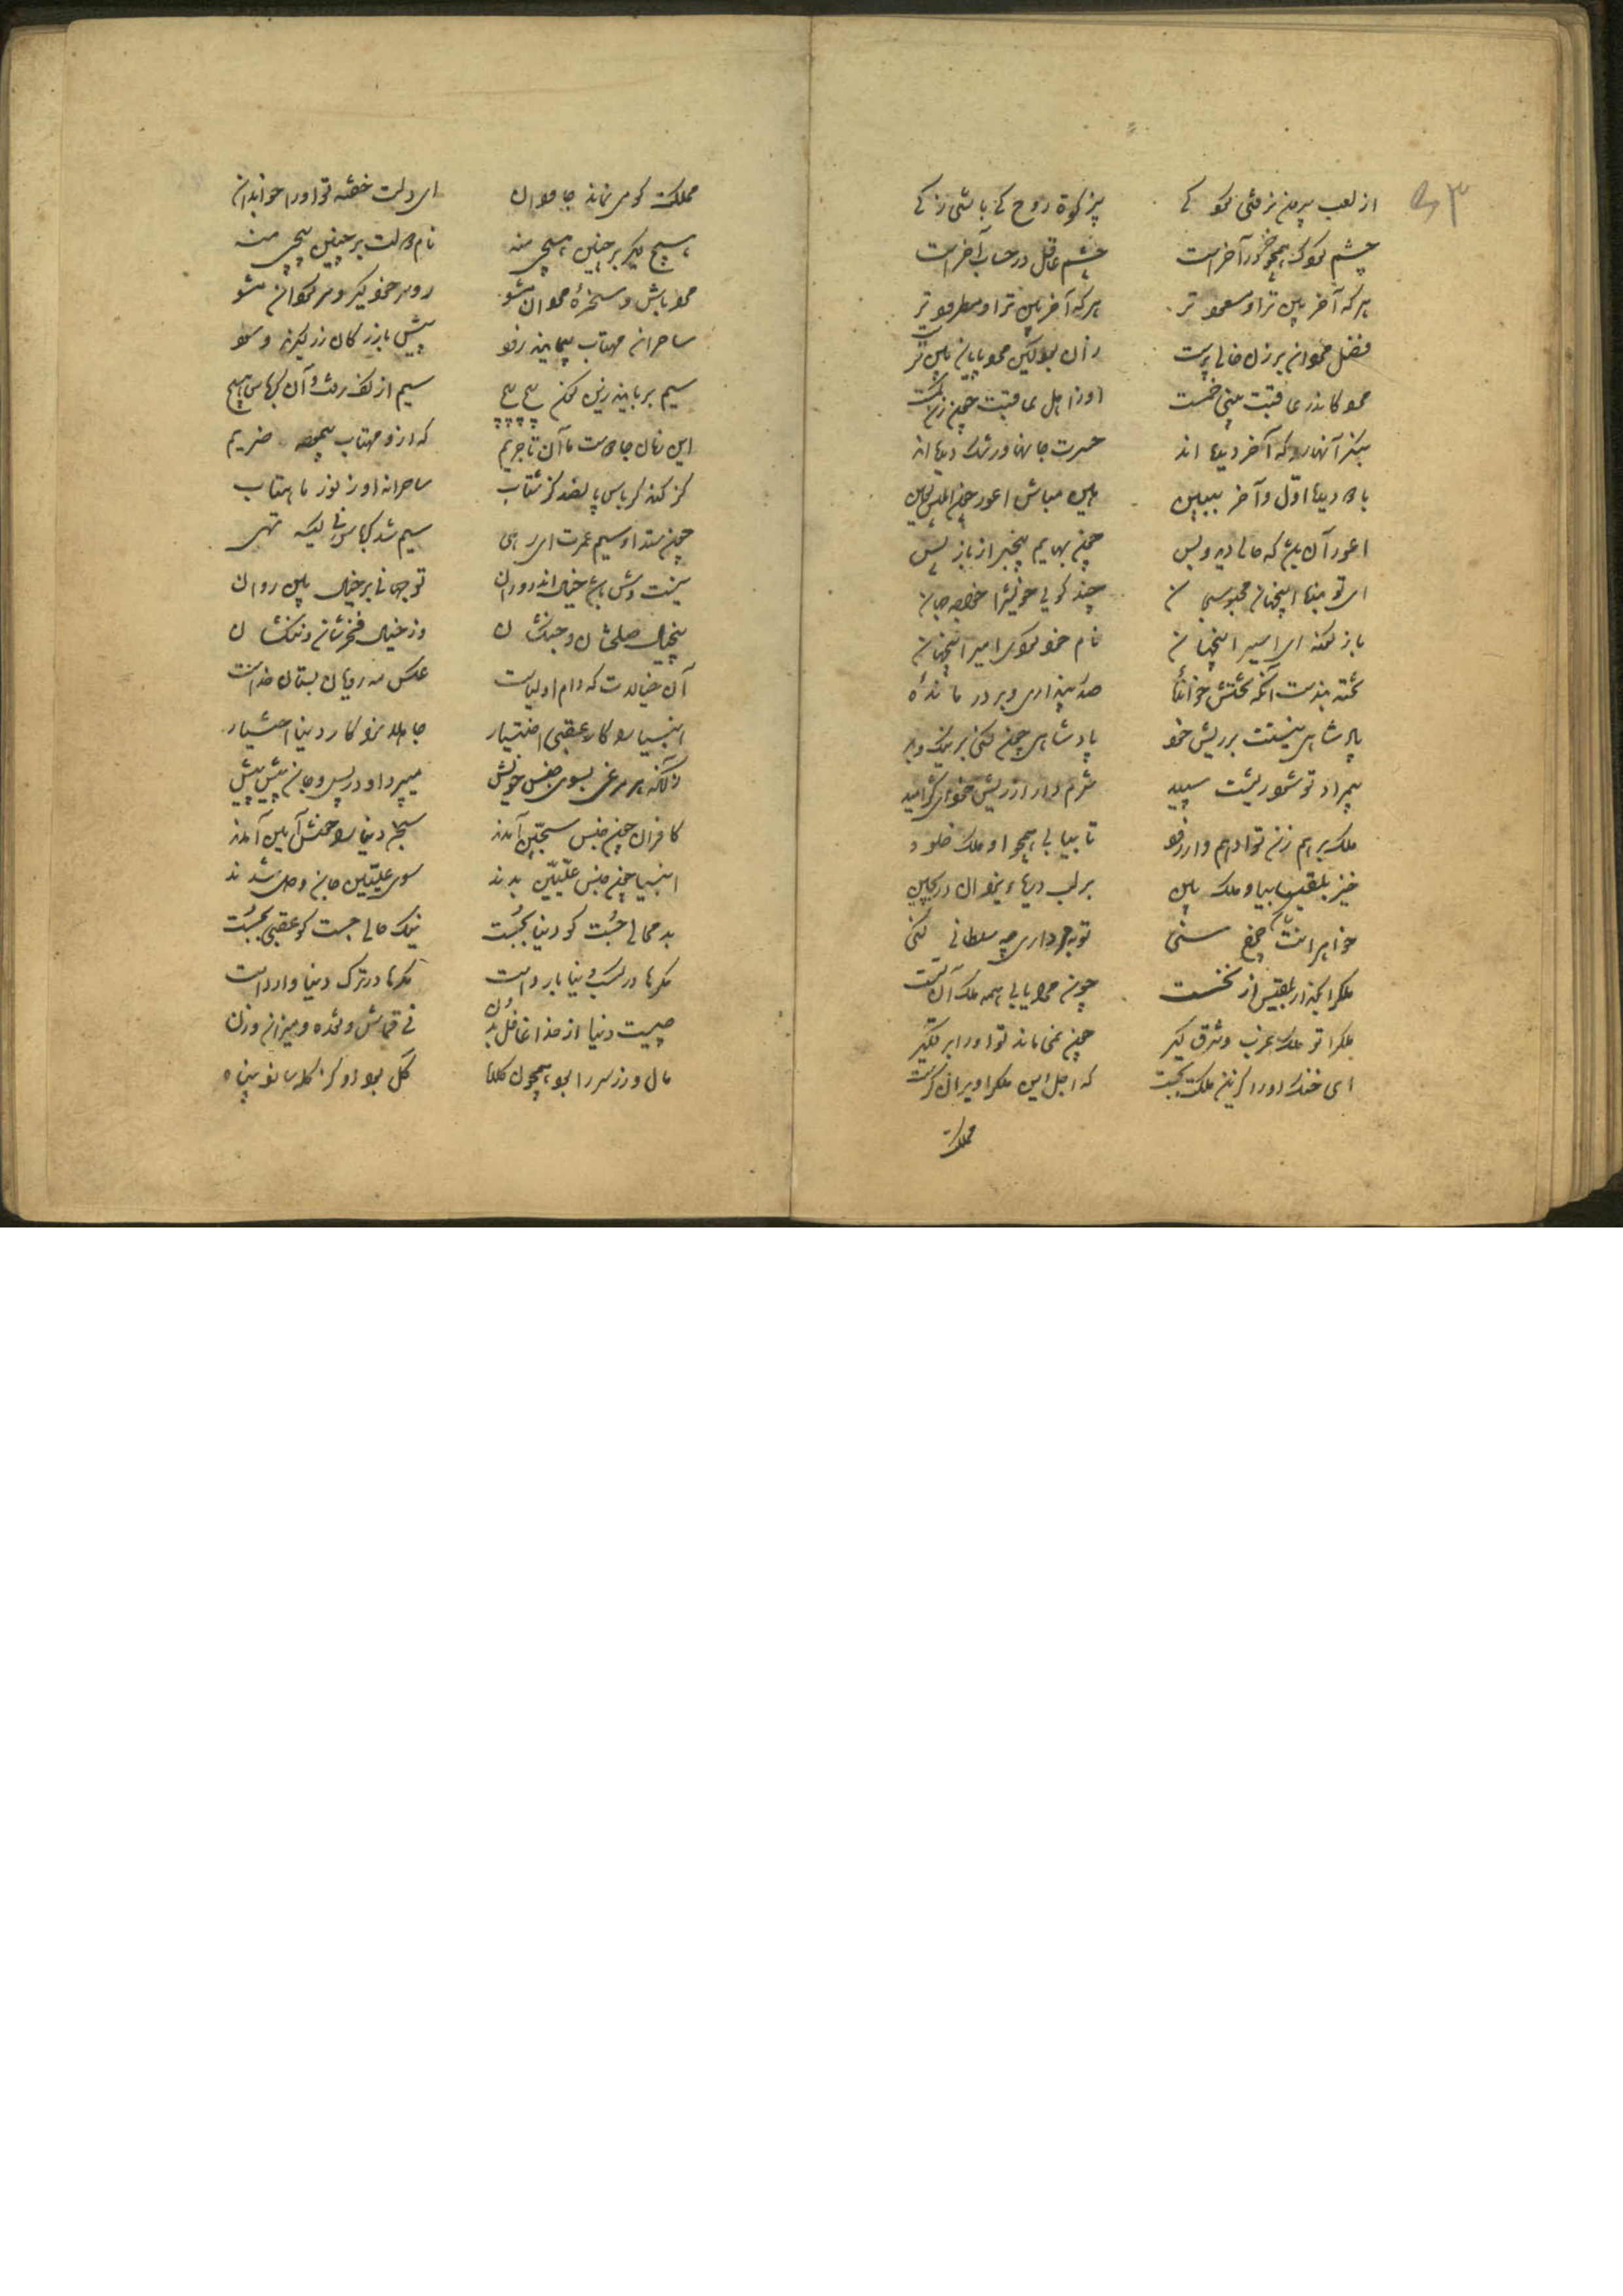 از لعب بیرون نرفتی کودکی    بی زکوة روح کی باشی زکی
چشم کودک همچو خر در آخرست    چشم عاقل در حساب آخرست
هرکه آخر بین تر او مسعود تر    هرکه آخر بین تر او مطرود تر
فضل مردان بر زن حالی پرست    زان بود که مرد پایان بین ترست
مرد کاندر عاقبت بینی خمست    او ز اهل عاقبت چون زن کمست
بنگر آنها را که آخر دیده اند    حسرت جانها و رشک دیده اند
باد دیده اول و آخر ببین    هین مباش اعور چو ابلیس لعین
اعور آن باشد که حالی دید و بس    چون بهایم بیخبر از باز پس
ای تو بنده اینجهان محبوس جان    چند گویی خویش را خواجه جهان
باژگونه ای اسیر اینجهان    نام خود کردی امیر اینجهان
تخته بندست آنکه تختش خوانده    صدر پنداری و بر در مانده
پادشاهی نیستت بر ریش خود    پادشاهی چون کنی بر نیک و بد
بیمراد تو شود ریشت سپید    شرم دار از ریش خود ای کژ امید
ملک برهم زن تو ادهم وار زود    تا بیابی همچو او ملک خلود
خیز بلقیسا بیا و ملک بین    بر لب دریای یزدان در بچین
خواهرانت چرخ سنی    تو بمرداری چه سلطانی کنی
ملک را بگذار بلقیس از نخست    چون مرا یابی همه ملک آن تست
ملک را تو ملک غرب و شرق گیر    چون نمی ماند تو او را برق گیر
ای خنک او را کزین ملکت بجست    که اجل این ملک را ویران گرست
مملکت
مملکت کو می نماند جاودان    ای دلت خفته تو او را خواب دان
هیچ دیگر بر چنین هیچی منه    نام دولت بر چنین پیچی منه
مرد باش و سخره مردان مشو    رو سر خود گیر و سر گردان مشو
ساحران مهتاب پیمایند زود    پیش بازرگان زر گیرند و سود
سیم بربایند زین گون پیچ پیچ    سیم از کف رفته و آن کرباس هیچ
این جهان جادوست ما آن تاجریم    که ازو مهتاب پیموده خریم
گز کند کرباس پانصد گز شتاب    ساحرانه او ز نور ماهتاب
چون ستد او سیم عمرت ای رهی    سیم شد کرباس نی کیسه تهی
نیست وش باشد خیال اندر روان    تو جهانی بر خیالی بین روان
بر خیالی صلحشان و جنگشان    وز خیالی فخرشان و ننگشان
آن خیالاتی که دام اولیاست    عکس مه رویان بستان خداست
انبیا را کار عقبی اختیار    جاهلان را کار دنیا اختیار
زانکه هر مرغی بسوی جنس خویش    میپرد او در پس و جان پیش پیش
کافران چون جنس سجین آمدند    سجن دنیا را خوش آیین آمدند
انبیا چون جنس علیین بدند    سوی علیین جان و دل شدند
بد محالی جست کو دنیا بجست    نیک حالی جست کو عقبی بجست
مکرها در کسب دنیا باردست    مکرها در ترک دنیا واردست
چیست دنیا از خدا غافل بدن    نی قماش و نقده و میزان و زن
مال و زر سر را بود همچون کلاه    کل بود او کز کله سازد پناه